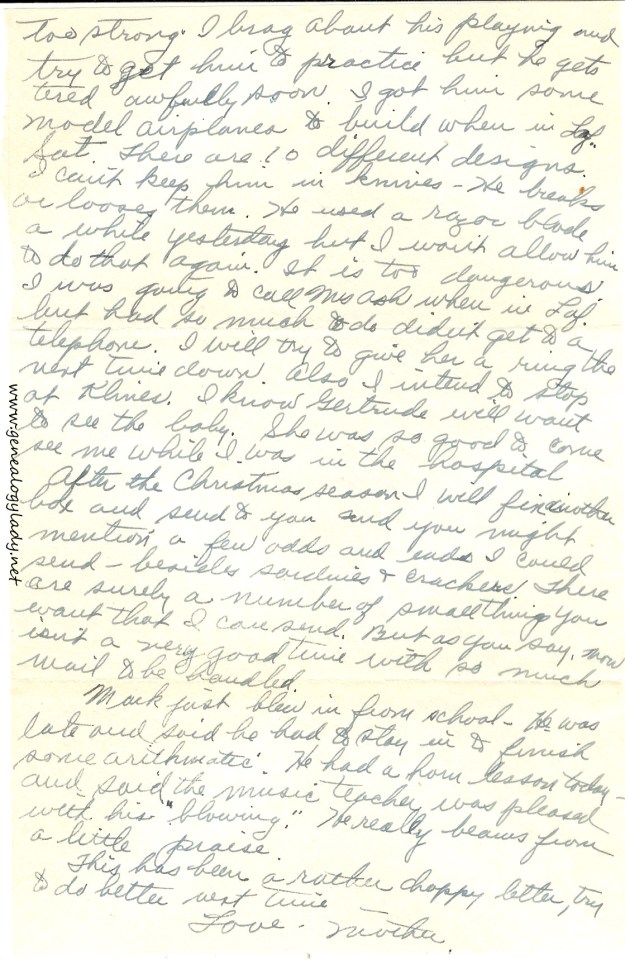 too strong. I brag about his playing and
try to get him to practice but he gets
tired awfully soon. I got him some
model airplanes to build when in Laf.
Sat. There are 10 different designs.
I can't keep him in knives - He breaks
or looses them. He used a razor blade
a while yesterday but I won't allow him
to do that again. It is too dangerous
I was going to call Mrs Ash when in Laf.
but had so much to do didn't get to a
telephone. I will try to give her a ring the
next time down. Also I intend to stop
at Klines. I know Gertrude will want
to see the baby. She was so good to come
see me while I was in the hospital
After the Christmas season I will fix another
box and send to you and you might
mention a few odds and ends I could
send - besides sardines & crackers. There
are surely a number of small thing you
want that I can send. But as you say, now
isn't a very good time with so much
mail to be handled.
Mark just blew in from school - He was
late and said he had to stay in to finish
some arithmatic. He had a horn lesson today -
and said the music teacher was pleased
with his "blowing." He really beams from
a little praise.
This has been a rather choppy letter, try
to do better next time
Love - Mother.
www.genealogylady.net